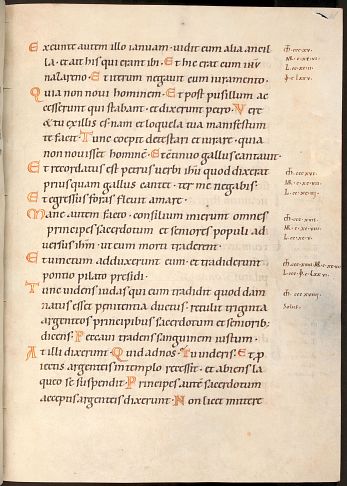 Exeunte autem illo ianuam · uidit eum alia ancil
la · et ait his qui erant ibi · Et hic erat cum ihu
nazareno · Et iterum negauit cum iuramento ·
Quia non noui hominem · Et post pusillum ac
cesserunt qui stabant · et dixerunt petro · Vere
& tu ex illis es · nam et loquela tua manifestum
te facit · Tunc coepit detestari et iurare · quia
non nouisset hominē · Et continuo gallus cantauit ·
Et recordatus est petrus uerbi ihu quod dixerat
prius quam gallus cantet · ter me negabis ·
Et egressus foras fleuit amare ·
Mane autem facto · consilium inierunt omnes
principes sacerdotum et seniores populi ad
uersus ihm · ut eum morti traderent ·
Et uinctum adduxerunt eum · et tradiderunt
pontio pilato presidi ·
Tunc uidens iudas qui eum tradidit quod dam
natus esset · penitentia ductus · retulit triginta
argenteos principibus sacerdotum et seniorib;
dicens · Peccaui tradens sanguinem iustum ·
At illi dixerunt · Quid ad nos · Tu uideris · Et p
iectis argenteis in templo recessit · et abiens la
queo se suspendit · Principes autē sacerdotum
acceptis argenteis dixerunt · Non licet mittere